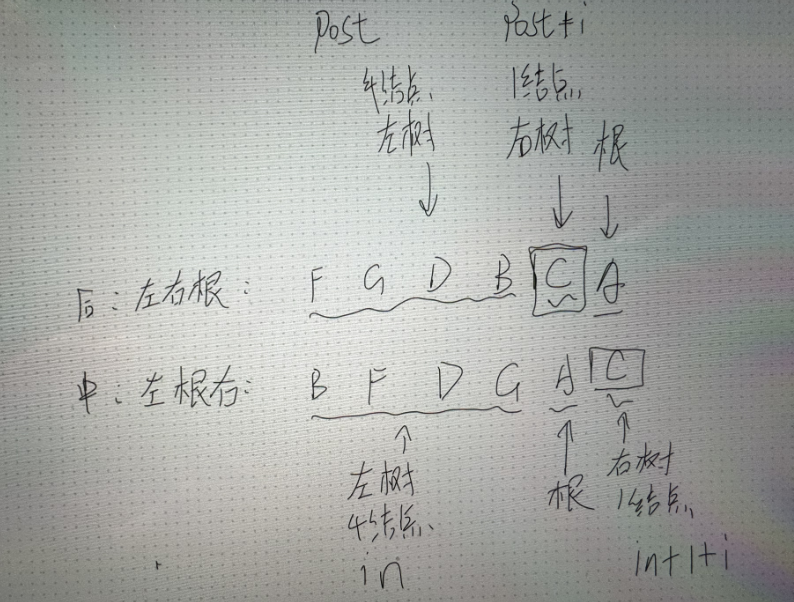 post post+i
4结点 1结点
左树 右树 根
后：左右根： F G D B C A
中：左根右： B F D G A C
左树 根 右树
4结点 1结点
in in+1+i